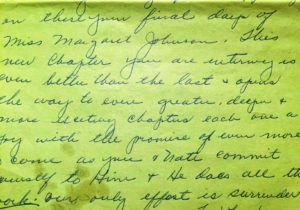 on these your final days of
Miss Margaret Johnson. This
new chapter you are entering is
even better than the last & opens
the way to even greater, deeper &
more exciting chapters each one a
joy with the promise of even more
to come as you & Nate commit
yourself to Him & He does all the
work. Our only effort is surrender